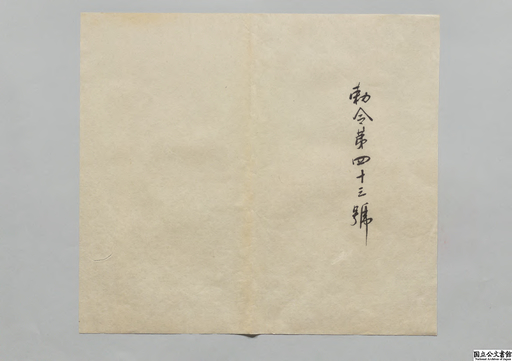 勅令第四十三號
国立公文書館
National Archives of Japan